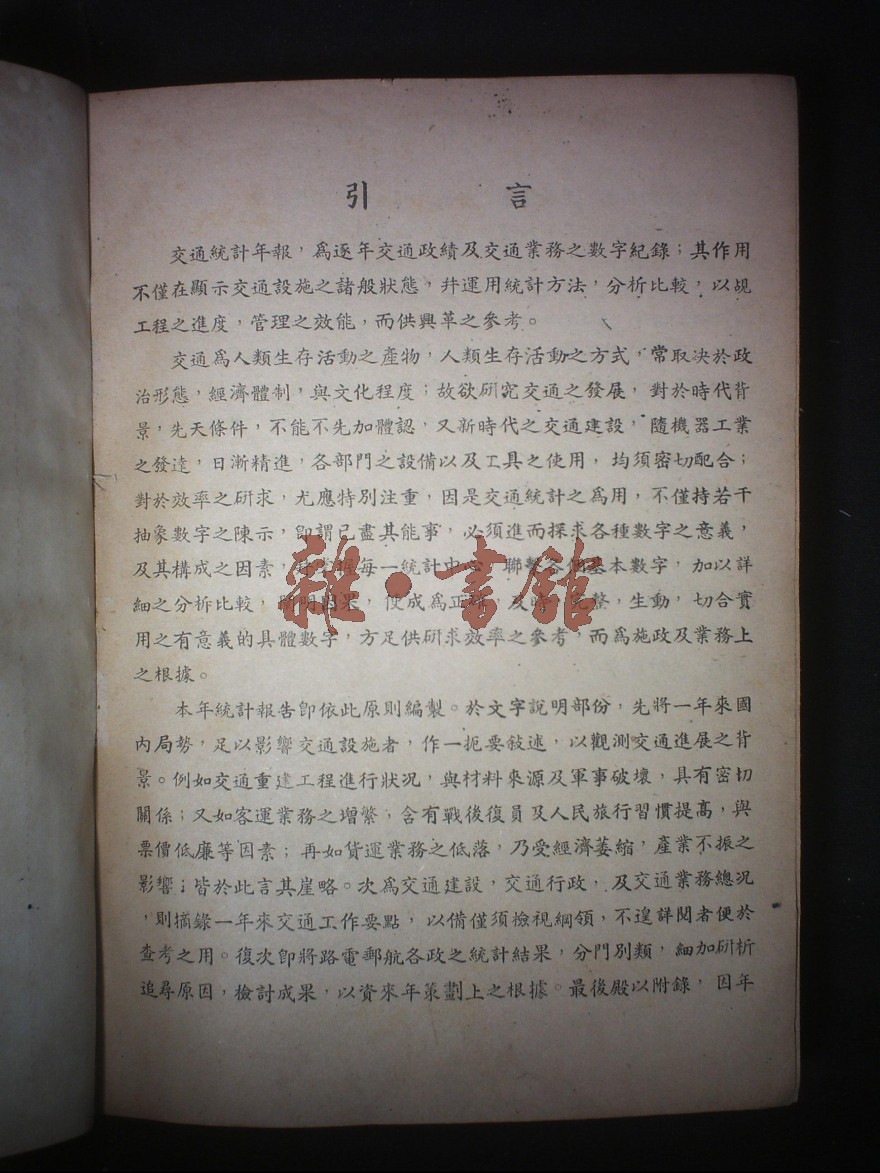 引言
交通統計年報，爲逐年交通政績及交通業務之數字紀錄；其作用
不僅在顯示交通設施之諸般狀態，并運用統計方法，分析比較，以覘
工程之進度，管理之效能，而供興革之參考。
交通爲人類生存活動之產物，人類生存活動之方式，常取決於政
治形態，經濟體制，與文化程度；故欲研究交通之發展，對於時代背
景，先天條件，不能不先加體認，又新時代之交通建設，隨機器工業
之發達，日漸精進，各部門之設備以及工具之使用，均須密切配合；
對於效率之研求，尤應特別注重，因是交通統計之爲用，不僅持若干
抽象數字之陳示，卽謂已盡其能事，必須進而探求各種數字之意義，
及其構成之因素，每一統計中心，聯繫各個基本數字，加以詳
細之分析比較，闡明因果，使成爲正確，及時，完整，生動，切合實
用之有意義的具體數字，方足供研求效率之參考，而爲施政及業務上
之根據。
本年統計報告卽依此原則編製。於文字說明部份，先將一年來國
內局勢，足以影響交通設施者，作一扼要敍述，以觀測交通進展之背
景。例如交通重建工程進行狀況，與材料來源及軍事破壞，具有密切
關係；又如客運業務之增繁，含有戰後復員及人民旅行習慣提高，與
票價低廉等因素；再如貨運業務之低落，乃受經濟萎縮，產業不振之
影響；皆於此言其崖略。次爲交通建設，交通行政，及交通業務總況
，則摘錄一年來交通工作要點，以備僅須檢視綱領，不遑詳閱者便於
查考之用。復次卽將路電郵航各政之統計結果，分門別類，細加研析
追尋原因，檢討成果，以資來年策劃上之根據。最後殿以附錄，因年
雜·書館